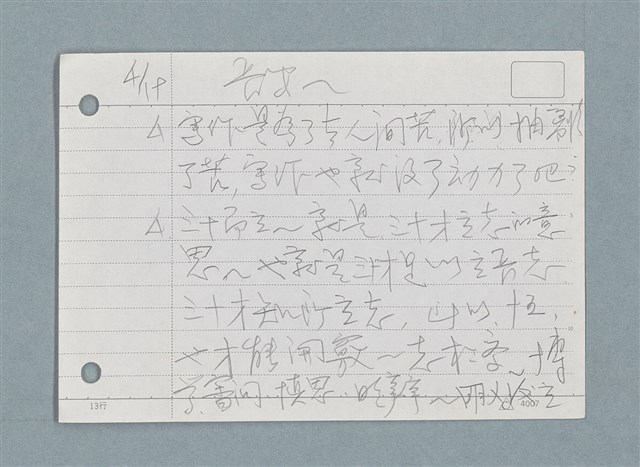 4/18
△ 寫作是為了去人間苦，所以抽離
了苦，寫作也就沒了動力了吧？
△ 三十而立～就是三十才立志的意
思～也就是三十才足以立吾志
三十才知所立志，所以，十五，
也才能開竅～志於學～博
學、審問、慎思、明辨～
13行
4007